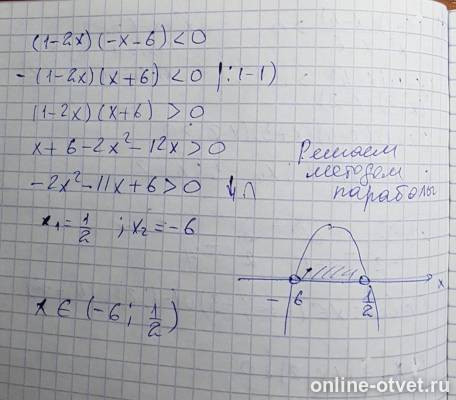 (1-2x)(-x-6)<0
-(1-2x)(x+6)<0 |:(-1)
(1-2x)(x+6)>0
x+6-2x²-12x>0
-2x²-11x+6>0 ↓∩
x₁=1/2 ; x₂=-6
x∈(-6; 1/2)
Решаем
методом
параболы
-6
1/2
x
online-otvet.ru